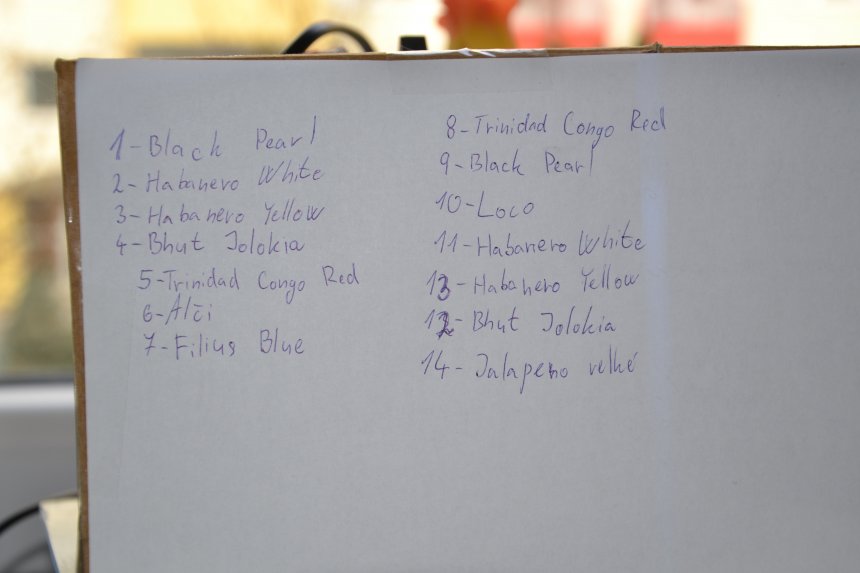 1-Black Pearl
2-Habanero White
3-Habanero Yellow
4-Bhut Jolokia
5-Trinidad Congo Red
6-Alči
7-Filius Blue
8-Trinidad Congo Red
9-Black Pearl
10-Loco
11-Habanero White
13-Habanero Yellow
12-Bhut Jolokia
14-Jalapeno velké